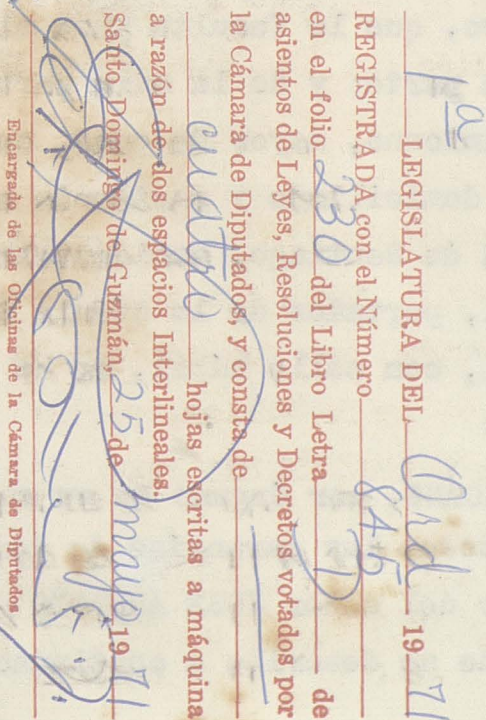 1ª LEGISLATURA DEL Ord 1971
REGISTRADA con el Número 845
en el folio 230 del Libro Letra D de
asientos de Leyes, Resoluciones y Decretos votados por
la Cámara de Diputados, y consta de
cuatro hojas escritas a máquina
a razón de dos espacios Interlineales.
Santo Domingo de Guzmán, 25 de mayo 1971
Encargado de las Oficinas de la Cámara de Diputados